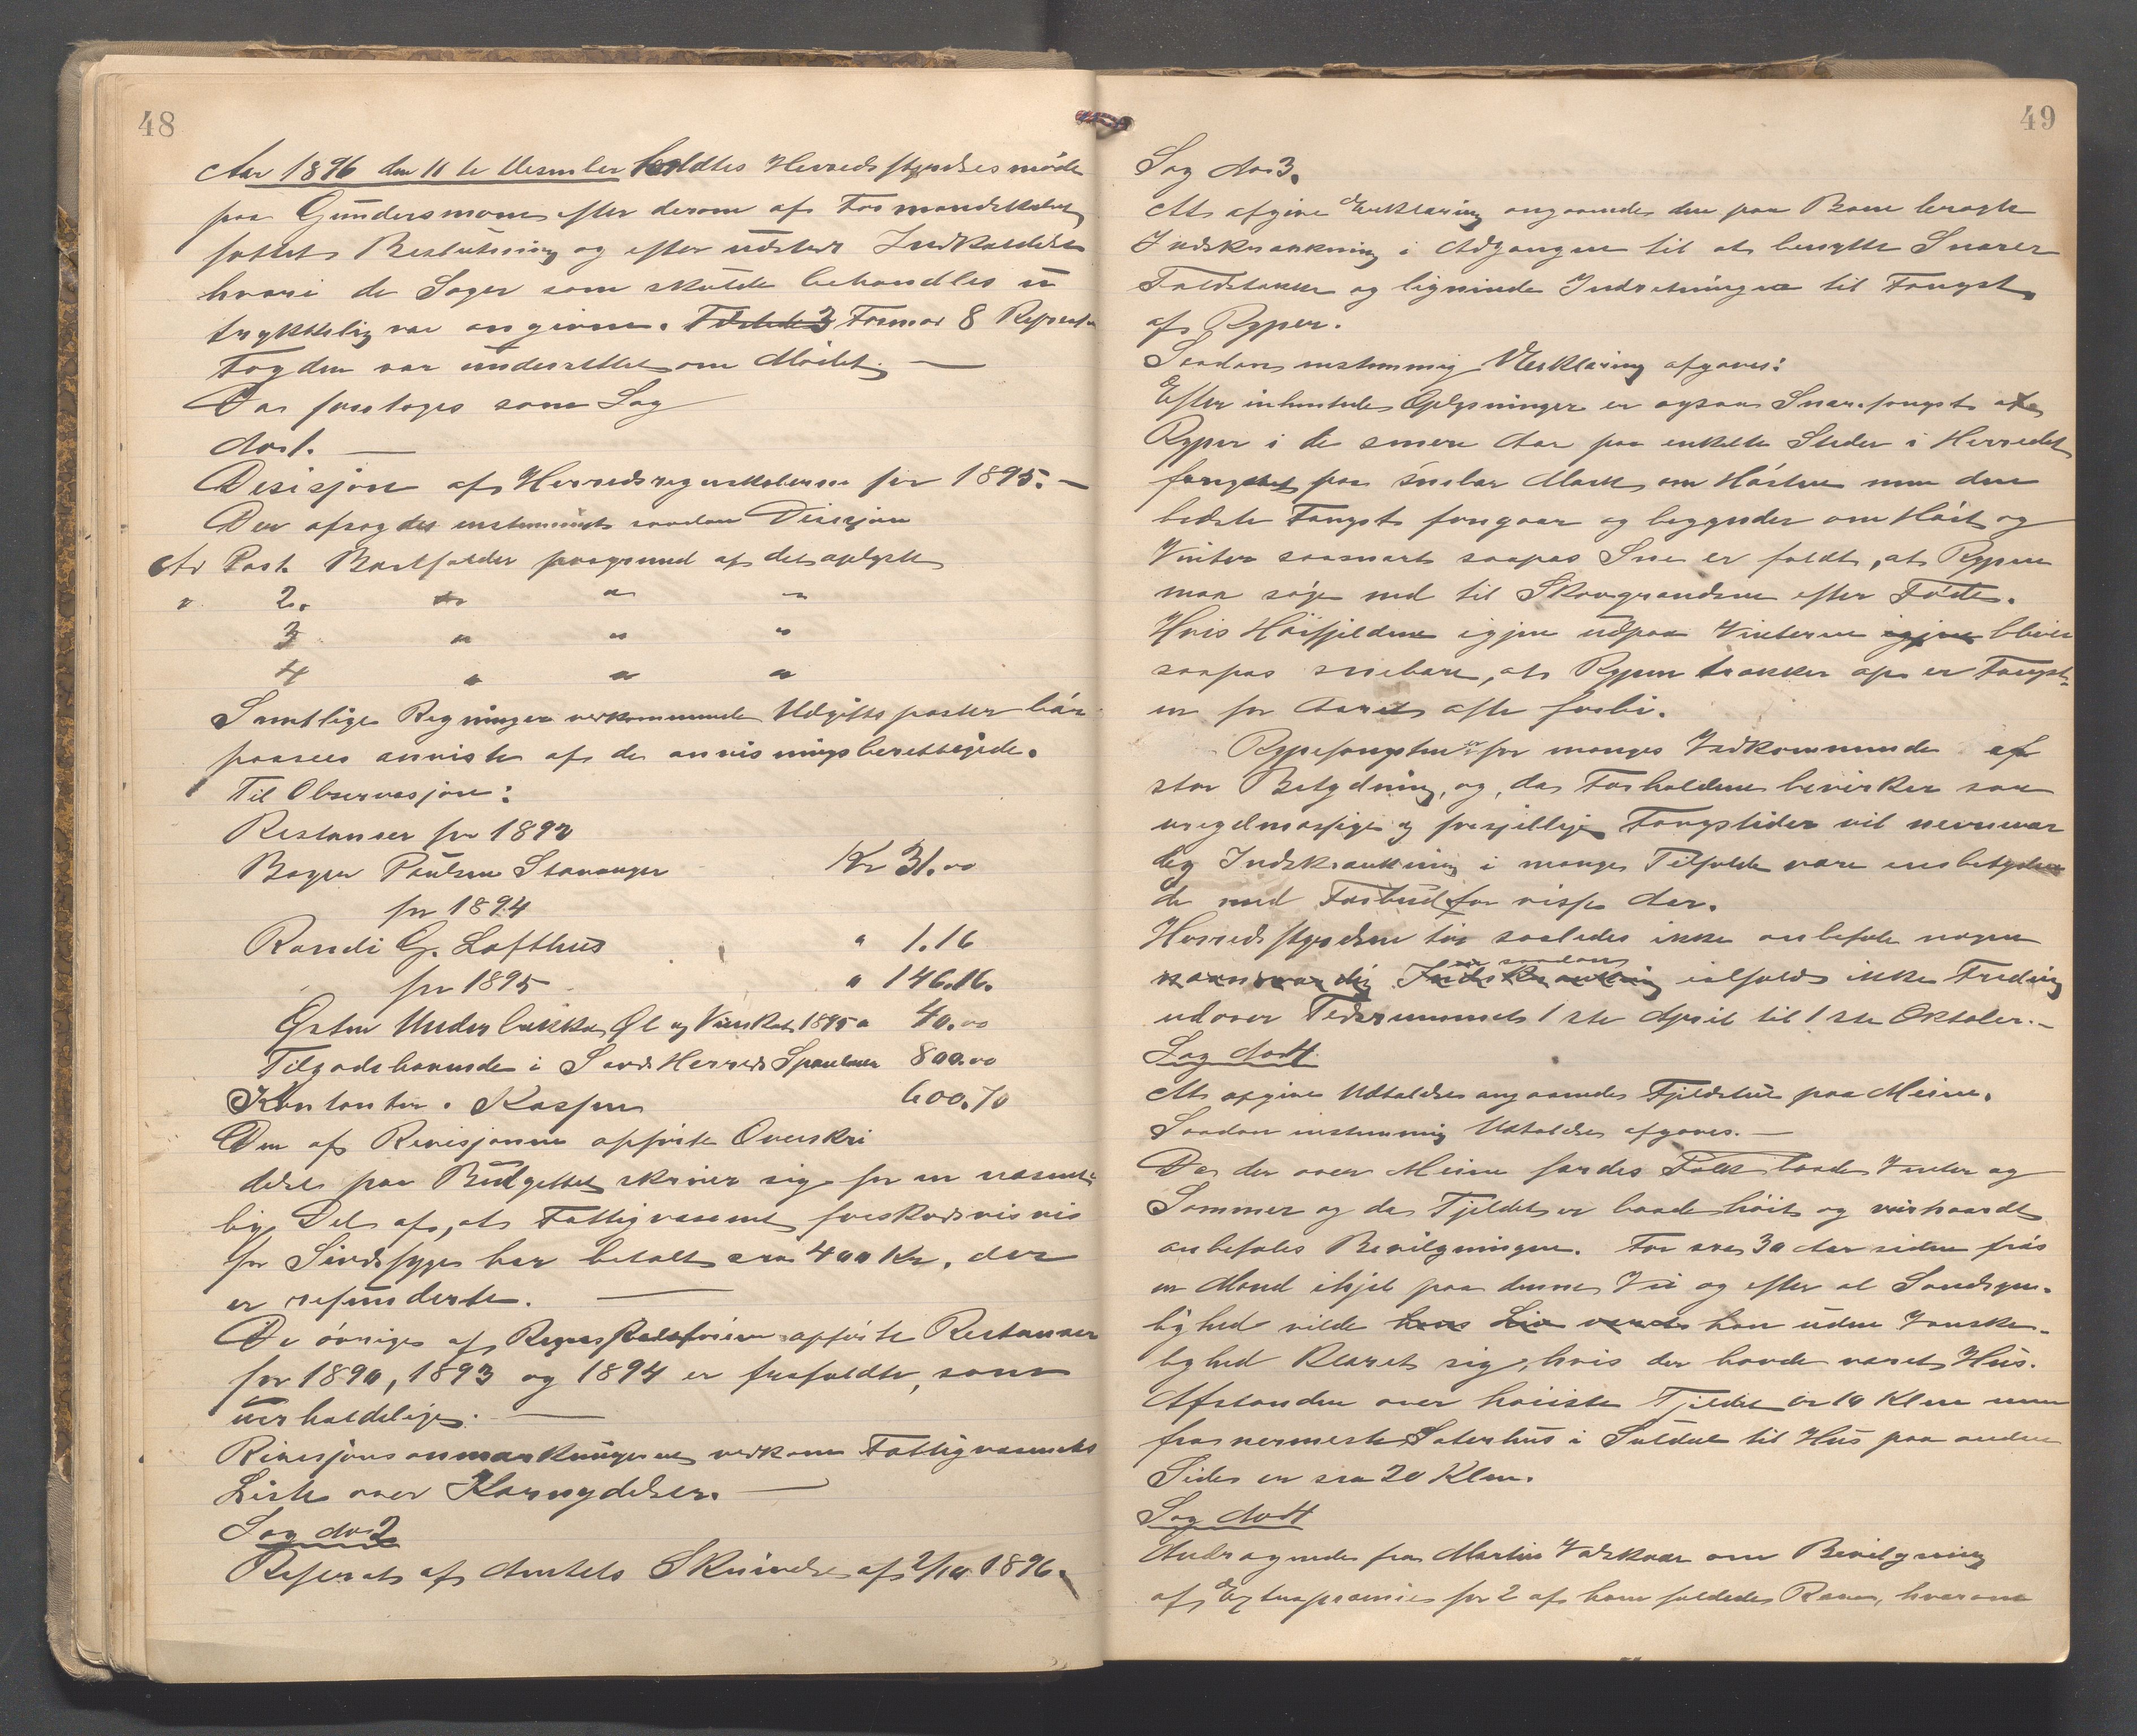 48
Aar 1896 den 11te Desember holdtes Herredsstyrelsesmöde
paa Gundersmoen efter derom af Formandskabet
fattet Beslutning og efter udstedt Indkaldelse
hvori de Sager som skulde behandles u
trykkelig var angivne. Tilstede 3 Formæ 8 Repræst.
Fogden var underrettet om Mödet. —
Der foretoges som Sag
No 1. —
Desisjon af Herredsregnskaberne for 1895. —
Der afsagdes enstemmigt saadan Desisjon
At Post 1. Bortfalder paagrund af det oplyste
" 2. " " "
3 " " "
4 " " "
Samtlige Regninger vedkommende Udgiftsposter bör
paasees anviste af de anvisningsberettigede.
Til Observasjon:
Restanser for 1892
Bager Paulsen Stavanger Kr 31.00
for 1894
Randi G. Lofthus " 1.16
for 1895 " 146.16.
Östen Underbakke Öl og Vinskat 1895 " 40.00
Tilgodehavende i Sands Herreds Sparebank 800.00
Kontanter i Kassen 600.70
Den af Revisjonen opförte Overskri
delse paa Budgettet skriver sig for en væsent-
lig Del af, at Fattigvæsenet forskudsvis
for Sindssyge har betalt ca 400 Kr. der
er refunderte. —
De övrige af opförte Restanser
for 1890, 1893 og 1894 er frafaldte, som
uerholdelige. —
Revisjonsanmærkningerne vedkom Fattigvæsenets
Liste over Kornydelser. —
Sag No 2
Referat af Amtets Skrivelse af 2/10 1896.
49
Sag No 3.
At afgive Erklæring angaaende den paa Bane bragte
Indskrænkning i Adgangen til at benytte Snarer
Faldstokke og lignende Indretninger til Fangst
af Ryper.
Saadan enstemmig Erklæring afgaves:
Efter indhentede Oplysninger er ogsaa Snarefangst af
Ryper i de senere Aar paa enkelte Steder i Herredet
paa snebar Mark om Hösten men den
bedste Fangst foregaar og begynder om Höst og
Vinter saasnart saapas Sne er faldt, at Rypen
maa söge ned til Skovgrændsen efter Föde.
Hvis Höifjeldene igjen udpaa Vinteren igjen bliver
saapas snebare, at Rypen trækker op er Fangst-
en for Aaret ofte forbi.
Rypefangsten er for manges Vedkommende af
stor Betydning, og, da Forholdene bevirker saa
uregelmæssige og forsjellige Fangstider vil nævnevær
dig Indskrænkning i mange Tilfælde være ensbetyden
de med Forbud for visse Aar.
Herredsstyrelsen tör saaledes ikke anbefale nogen
en saadan
nævneværdig Indskrænkning ialfald ikke Fredning
udover Tidsrummet 1ste April til 1ste Oktober. —
Sag No 4
At afgive Udtalelse angaaende Fjeldstue paa Meine.
Saadan enstemmig Udtalelse afgaves. —
Da der over Meine færdes Folk baade Vinter og
Sommer og da Fjeldet er baade höit og veirhaardt
anbefales Bevilgningen. For ca 30 Aar siden frös
en Mand ihjel paa denne Vei og efter al Sandsyn-
lighed vilde hans Liv han uden Vanske-
lighed klaret sig, hvis der havde været Hus.
Afstanden over höieste Fjeldet er 10 Klm men
fra nærmeste Sæterhus i Suldal til Hus paa anden
Side er ca 20 Klm.
Sag No 4
Andragende fra Martin Vadskær om Bevilgning
af Extrapræmie for 2 af ham fældede hvoraf